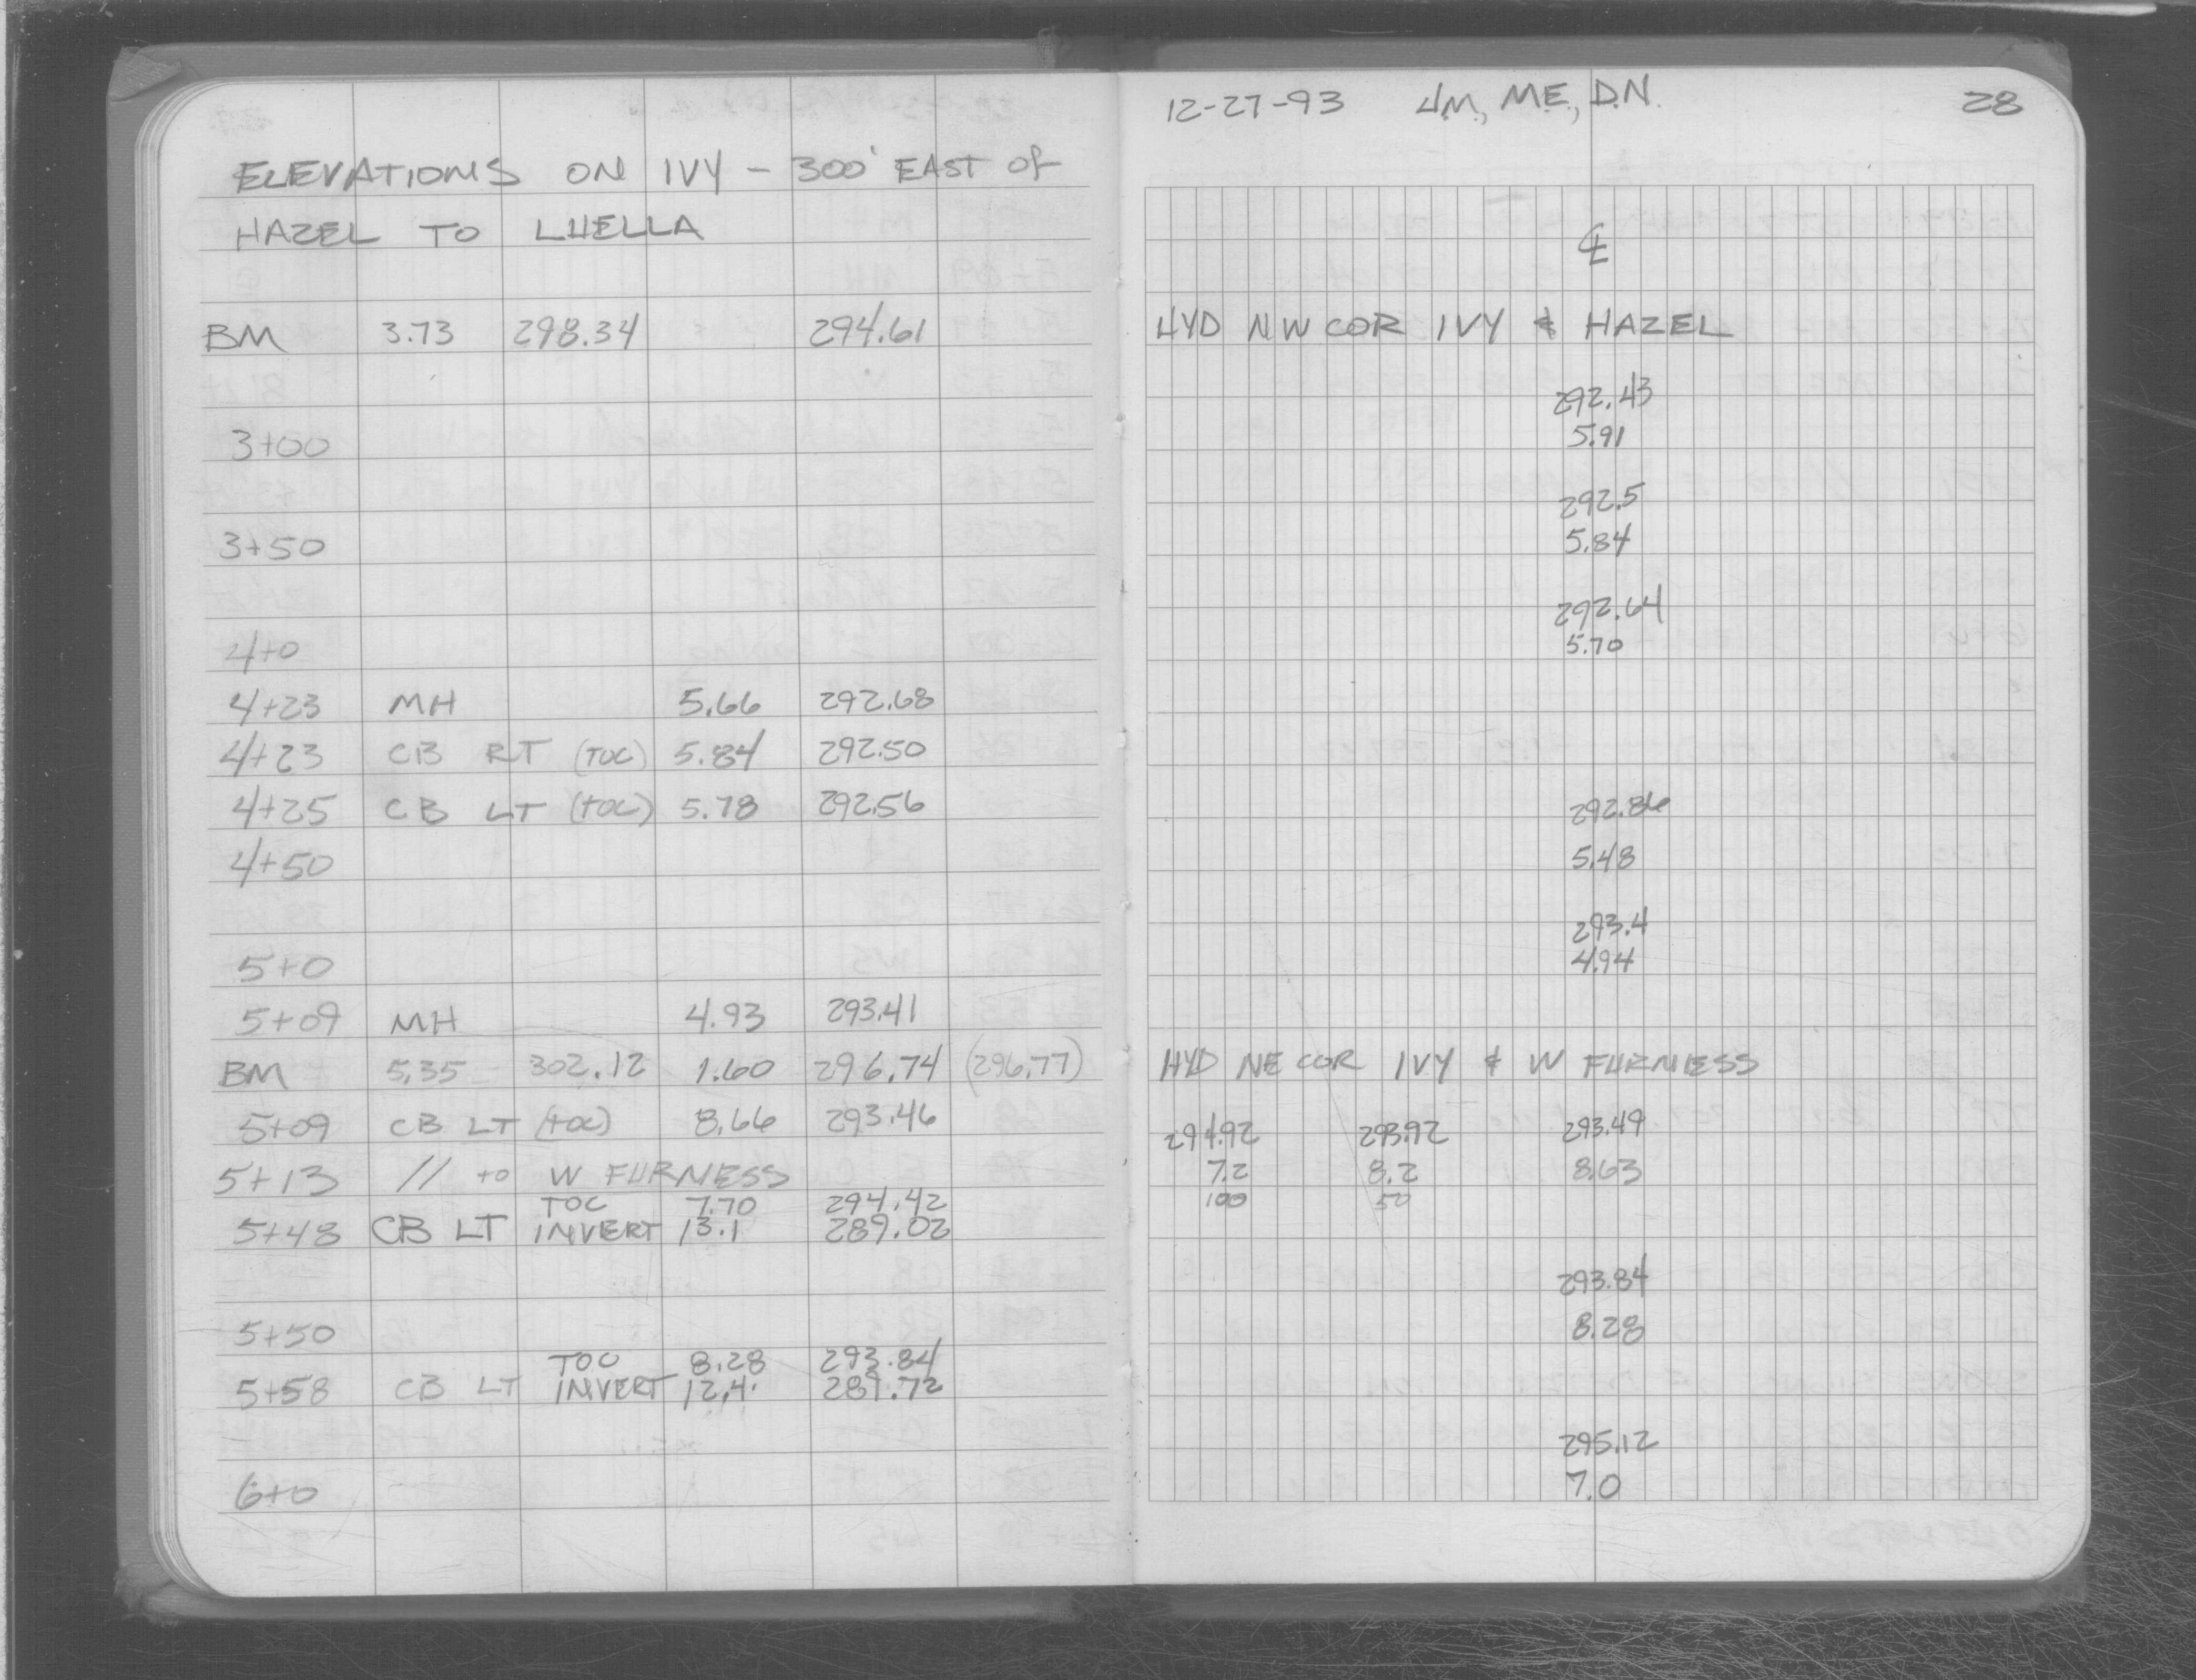 ELEVATIONS ON IVY - 300' EAST OF
HAZEL TO LUELLA
BM 3.73 298.34 294.61
3+00
3+50
4+0
4+23 MH 5.66 292.68
4+23 CB RT (TOC) 5.84 292.50
4+25 CB LT (TOC) 5.78 292.56
4+50
5+0
5+09 MH 4.93 293.41
BM 5.35 302.12 1.60 296.74 (296.77)
5+09 CB LT (TOC) 8.66 293.46
5+13 // to W FURNESS
TOC 7.70 294.42
5+48 CB LT INVERT 13.1 289.02
5+50
TOC 8.28 293.84
5+58 CB LT INVERT 12.4 289.72
6+0
12-27-93 J.M., M.E., D.N. 28
℄
HYD NW COR IVY & HAZEL
292.43
5.91
292.5
5.84
292.64
5.70
292.86
5.48
293.4
4.94
HYD NE COR IVY & W FURNESS
294.92 293.92 293.49
7.2 8.2 8.63
100 50
293.84
8.28
295.12
7.0